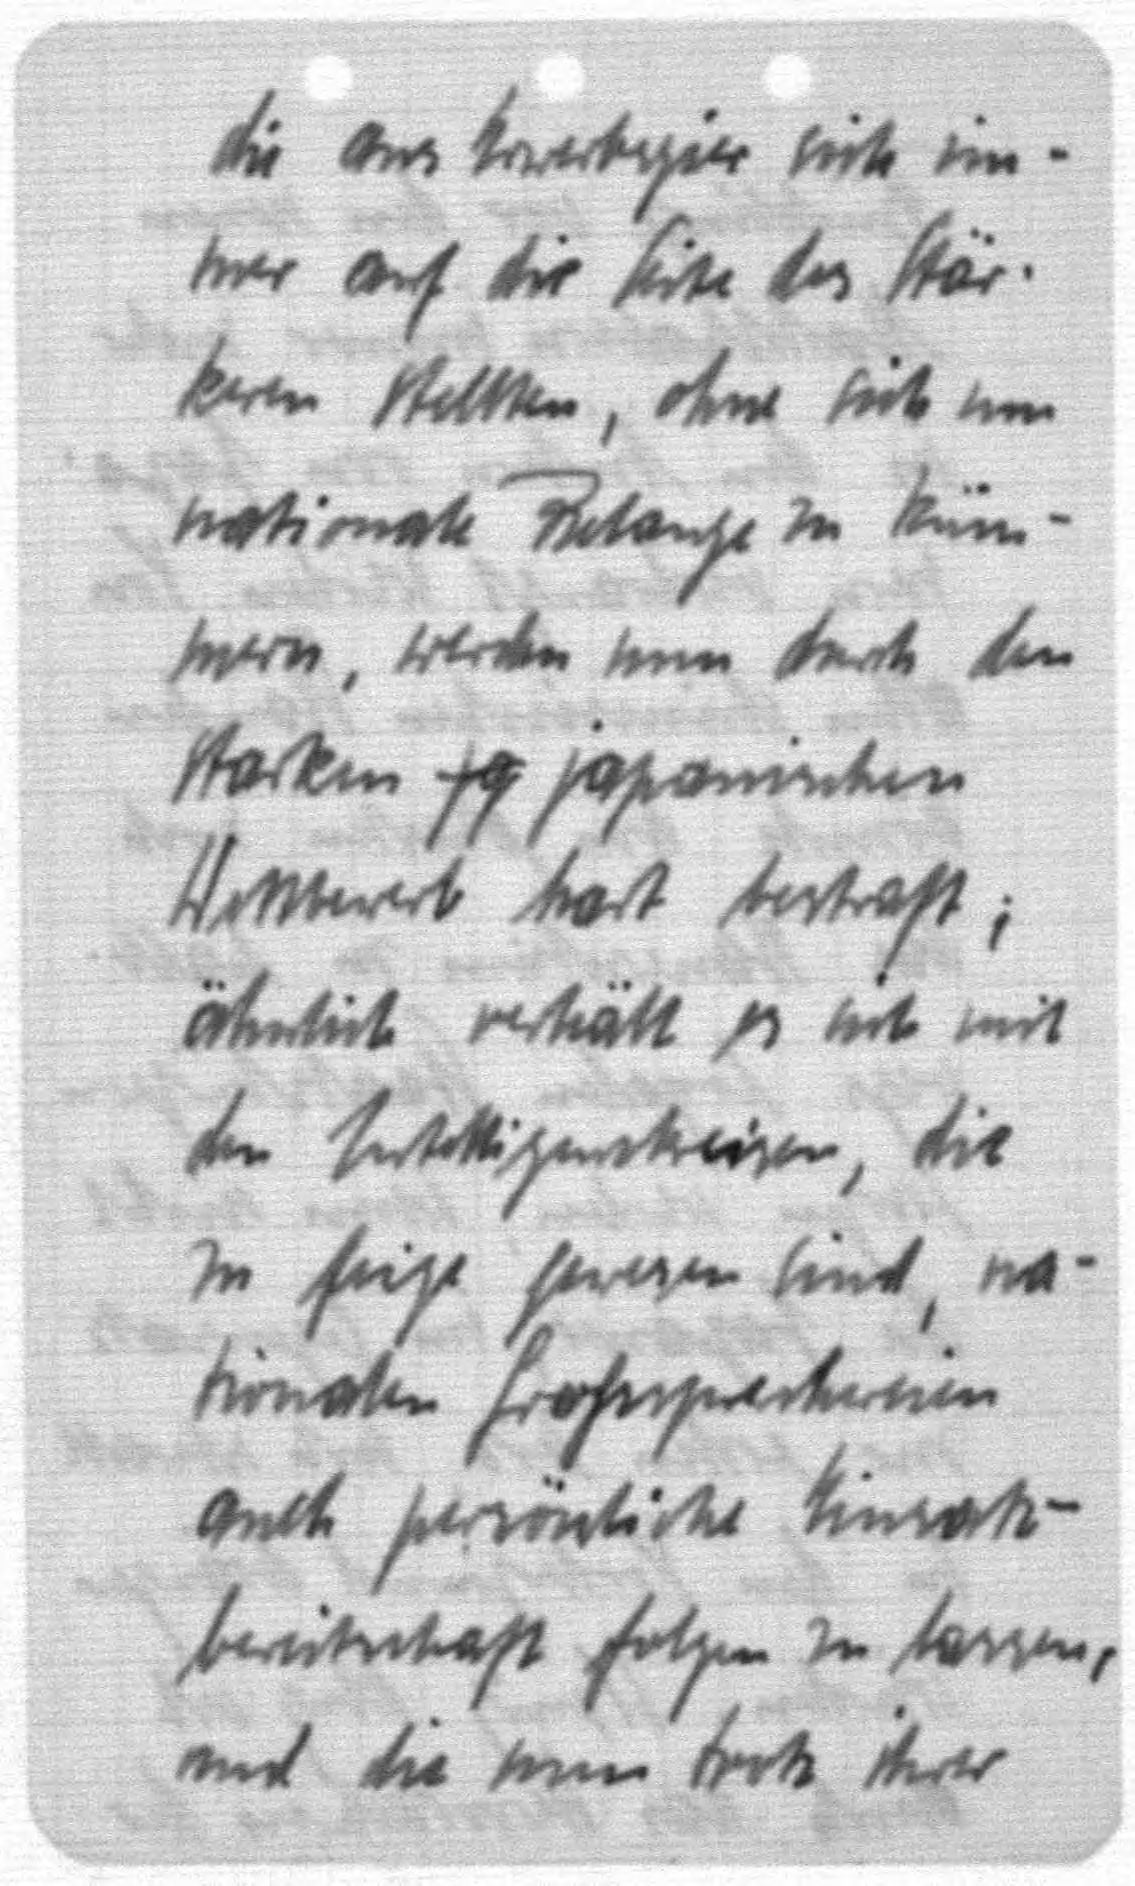 die aus Erwerbsgier sich im-
mer auf die Seite des Stär-
keren stellten, ohne sich um
nationale Belange zu küm-
mern, werden nun durch den
starken japanischen
Wettbewerb hart bestraft;
ähnlich verhält es sich mit
den Intelligenzkreisen, die
zu feige gewesen sind, na-
tionalen Großsprechereien
auch persönliche Einsatz-
bereitschaft folgen zu lassen,
und die nun trotz ihrer